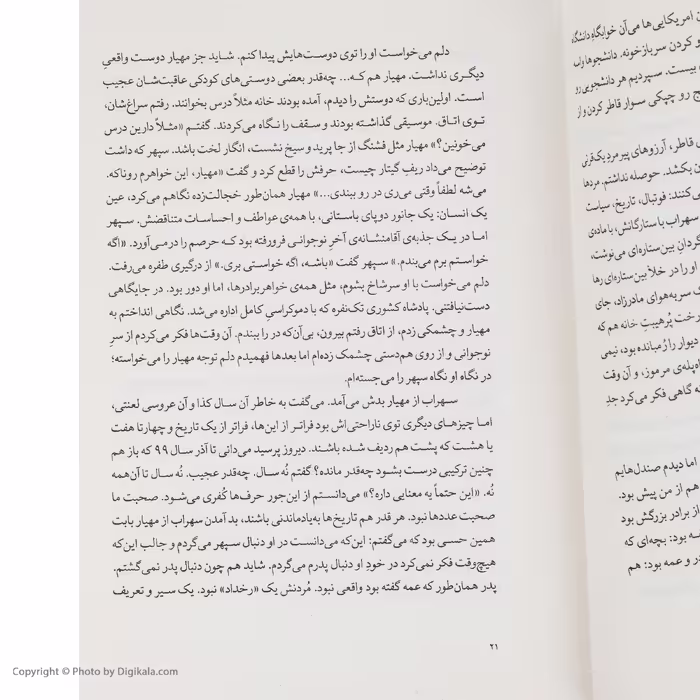 ن امریکایی‌ها می‌آن خوابگاه دانشگاه
و کردن سربازخونه. دانشجوها واسه
بیست. سپردیم هر دانشجویی رو
ج رو چپکی سوار قاطر کردن و از
قاطر، آرزوهای پیرمردِ یک‌قرنی
ن بکشد. حوصله نداشتم. مردها
ی‌کنند: فوتبال، تاریخ، سیاست
سهراب با ستارگانش، با ماده‌ی
گردانِ بین‌ستاره‌ای می‌نوشت،
او را در خلأ بین‌ستاره‌ای رها
گ سربه‌هوای مادرزاد، جای
رخت پُرهیبتِ خانه هم که
دیوار را رُمبانده بود، نیمی
اه‌پله‌ی مرموز، و آن وقت
ه گاهی فکر می‌کرد جدِ
اما دیدم صندل‌هایم
هم از من پیش بود.
از برادر بزرگش بود
سه بود: بچه‌ای که
در و عمه بود: هم
دلم می‌خواست او را توی دوست‌هایش پیدا کنم. شاید جز مهیار دوست واقعیِ
دیگری نداشت. مهیار هم که... چه‌قدر بعضی دوستی‌های کودکی عاقبت‌شان عجیب
است. اولین‌باری که دوستش را دیدم، آمده بودند خانه مثلاً درس بخوانند. رفتم سراغ‌شان،
توی اتاق. موسیقی گذاشته بودند و سقف را نگاه می‌کردند. گفتم «مثلاً دارین درس
می‌خونین؟» مهیار مثل فشنگ از جا پرید و سیخ نشست، انگار لخت باشد. سپهر که داشت
توضیح می‌داد ریفِ گیتار چیست، حرفش را قطع کرد و گفت «مهیار، این خواهرم روناکه.
می‌شه لطفاً وقتی می‌ری در رو ببندی...» مهیار همان‌طور خجالت‌زده نگاهم می‌کرد، عین
یک انسان: یک جانور دوپای باستانی، با همه‌ی عواطف و احساسات متناقضش. سپهر
اما در یک جذبه‌ی آقامنشانه‌ی آخرِ نوجوانی فرورفته بود که حرصم را درمی‌آورد. «اگه
خواستم برم می‌بندم.» سپهر گفت «باشه، اگه خواستی بری.» از درگیری طفره می‌رفت.
دلم می‌خواست با او سرشاخ بشوم، مثل همه‌ی خواهربرادرها، اما او دور بود. در جایگاهی
دست‌نیافتنی: پادشاه کشوری تک‌نفره که با دموکراسیِ کامل اداره می‌شد. نگاهی انداختم به
مهیار و چشمکی زدم، از اتاق رفتم بیرون، بی‌آن‌که در را ببندم. آن وقت‌ها فکر می‌کردم از سرِ
نوجوانی و از روی هم‌دستی چشمک زده‌ام اما بعدها فهمیدم دلم توجه مهیار را می‌خواسته؛
در نگاه او نگاه سپهر را می‌جسته‌ام.
سهراب از مهیار بدش می‌آمد. می‌گفت به خاطر آن سال کذا و آن عروسی لعنتی،
اما چیزهای دیگری توی ناراحتی‌اش بود فراتر از این‌ها، فراتر از یک تاریخ و چهار تا هفت
یا هشت که پشت هم ردیف شده باشند. دیروز پرسید می‌دانی تا آذر سال ۹۹ که باز هم
چنین ترکیبی درست بشود چه‌قدر مانده؟ گفتم نُه سال. چه‌قدر عجیب. نُه سال تا آن‌همه
نُه. «این حتماً یه معنایی داره؟» می‌دانستم از این‌جور حرف‌ها کُفری می‌شود. صحبت ما
صحبت عددها نبود. هر قدر هم تاریخ‌ها به‌یادماندنی باشند، بد آمدن سهراب از مهیار بابت
همین حسی بود که می‌گفتم: این‌که می‌دانست در او دنبال سپهر می‌گردم و جالب این‌که
هیچ‌وقت فکر نمی‌کرد در خودِ او دنبال پدرم می‌گردم. شاید هم چون دنبال پدر نمی‌گشتم.
پدر همان‌طور که عمه گفته بود واقعی نبود. مُردنش یک «رخداد» نبود. یک سیر و تعریف
۲۱
Copyright © Photo by Digikala.com